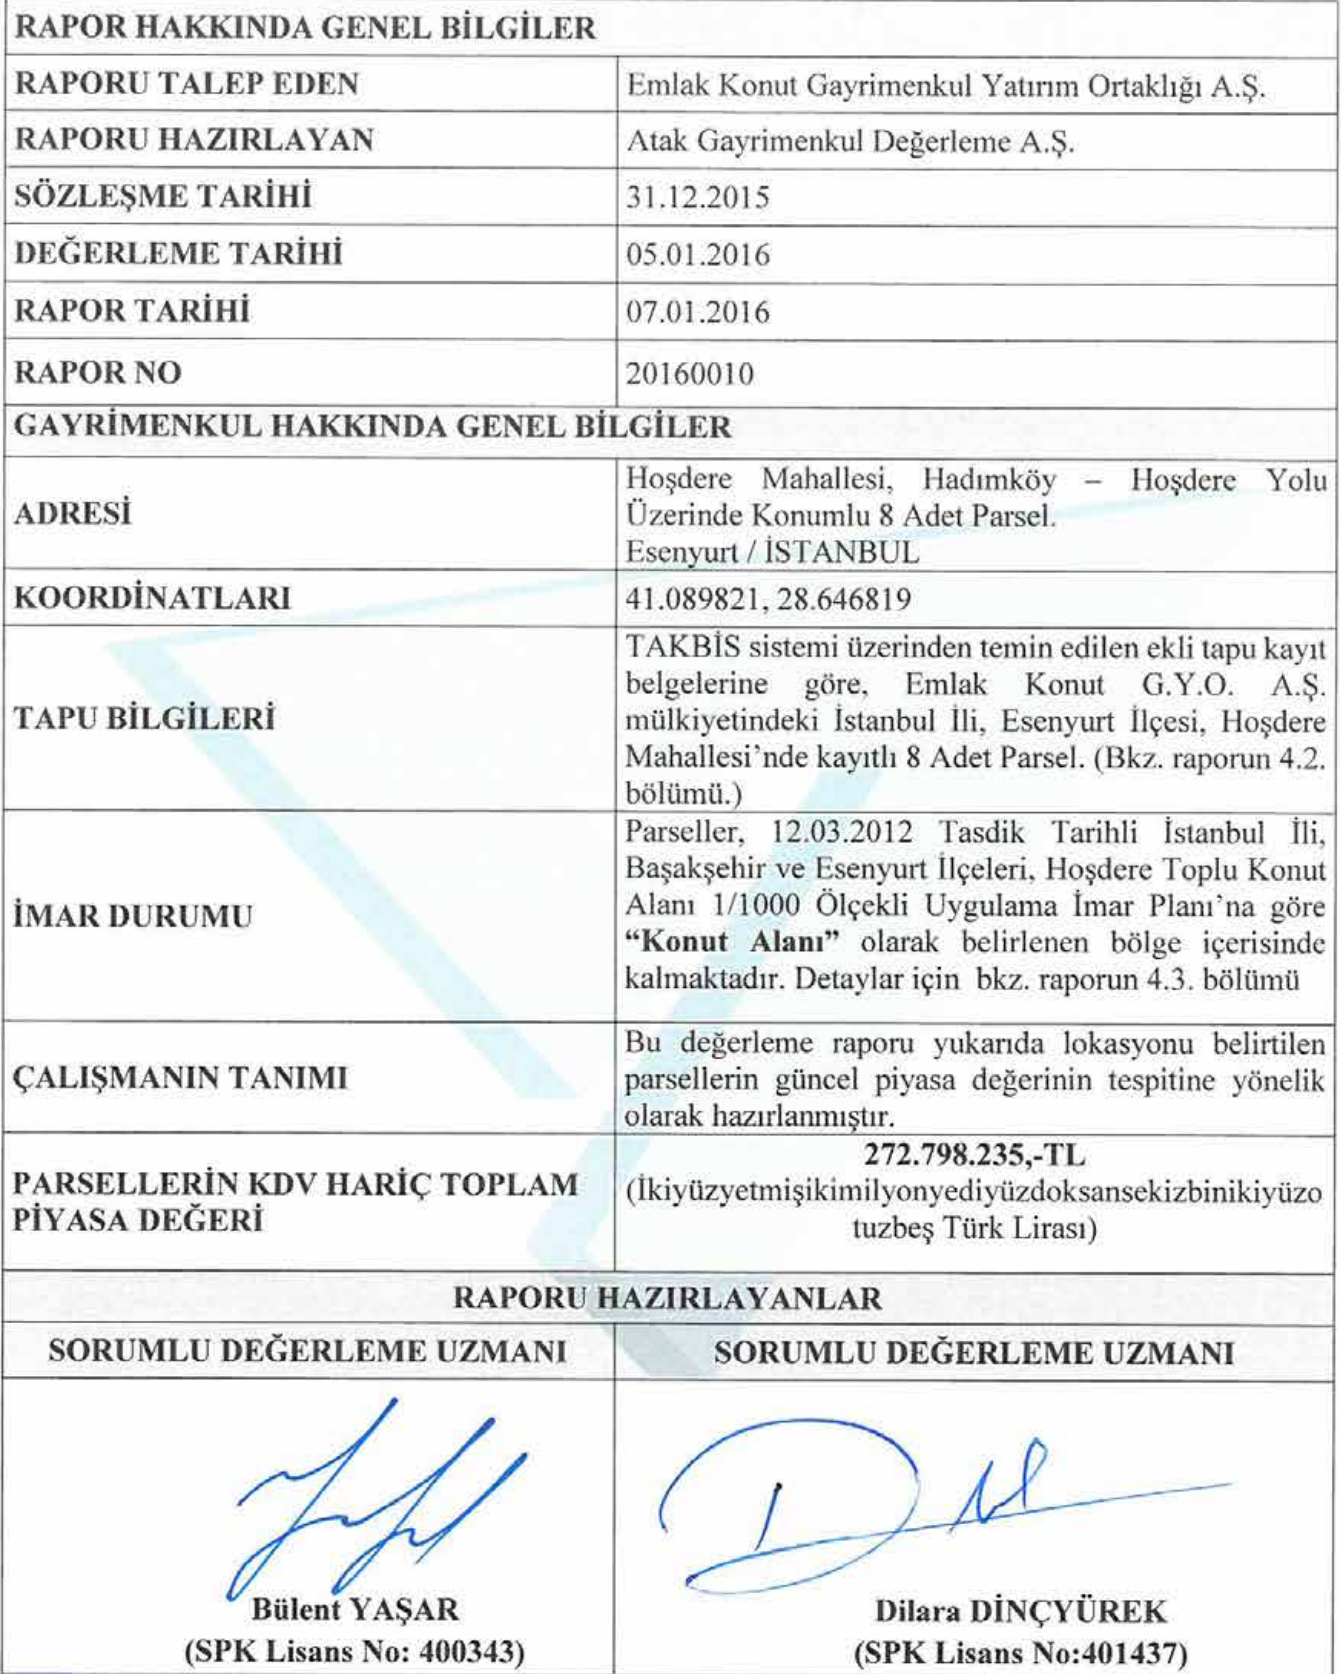 RAPOR HAKKINDA GENEL BİLGİLER
RAPORU TALEP EDEN
Emlak Konut Gayrimenkul Yatırım Ortaklığı A.Ş.
RAPORU HAZIRLAYAN
Atak Gayrimenkul Değerleme A.Ş.
SÖZLEŞME TARİHİ
31.12.2015
DEĞERLEME TARİHİ
05.01.2016
RAPOR TARİHİ
07.01.2016
RAPOR NO
20160010
GAYRİMENKUL HAKKINDA GENEL BİLGİLER
ADRESİ
Hoşdere Mahallesi, Hadımköy – Hoşdere Yolu
Üzerinde Konumlu 8 Adet Parsel.
Esenyurt / İSTANBUL
KOORDİNATLARI
41.089821, 28.646819
TAPU BİLGİLERİ
TAKBİS sistemi üzerinden temin edilen ekli tapu kayıt
belgelerine göre, Emlak Konut G.Y.O. A.Ş.
mülkiyetindeki İstanbul İli, Esenyurt İlçesi, Hoşdere
Mahallesi’nde kayıtlı 8 Adet Parsel. (Bkz. raporun 4.2.
bölümü.)
İMAR DURUMU
Parseller, 12.03.2012 Tasdik Tarihli İstanbul İli,
Başakşehir ve Esenyurt İlçeleri, Hoşdere Toplu Konut
Alanı 1/1000 Ölçekli Uygulama İmar Planı’na göre
“Konut Alanı” olarak belirlenen bölge içerisinde
kalmaktadır. Detaylar için bkz. raporun 4.3. bölümü
ÇALIŞMANIN TANIMI
Bu değerleme raporu yukarıda lokasyonu belirtilen
parsellerin güncel piyasa değerinin tespitine yönelik
olarak hazırlanmıştır.
PARSELLERİN KDV HARİÇ TOPLAM
PİYASA DEĞERİ
272.798.235,-TL
(İkiyüzyetmişikimilyonyediyüzdoksansekizbinikiyüzo
tuzbeş Türk Lirası)
RAPORU HAZIRLAYANLAR
SORUMLU DEĞERLEME UZMANI
SORUMLU DEĞERLEME UZMANI
Bülent YAŞAR
(SPK Lisans No: 400343)
Dilara DİNÇYÜREK
(SPK Lisans No:401437)